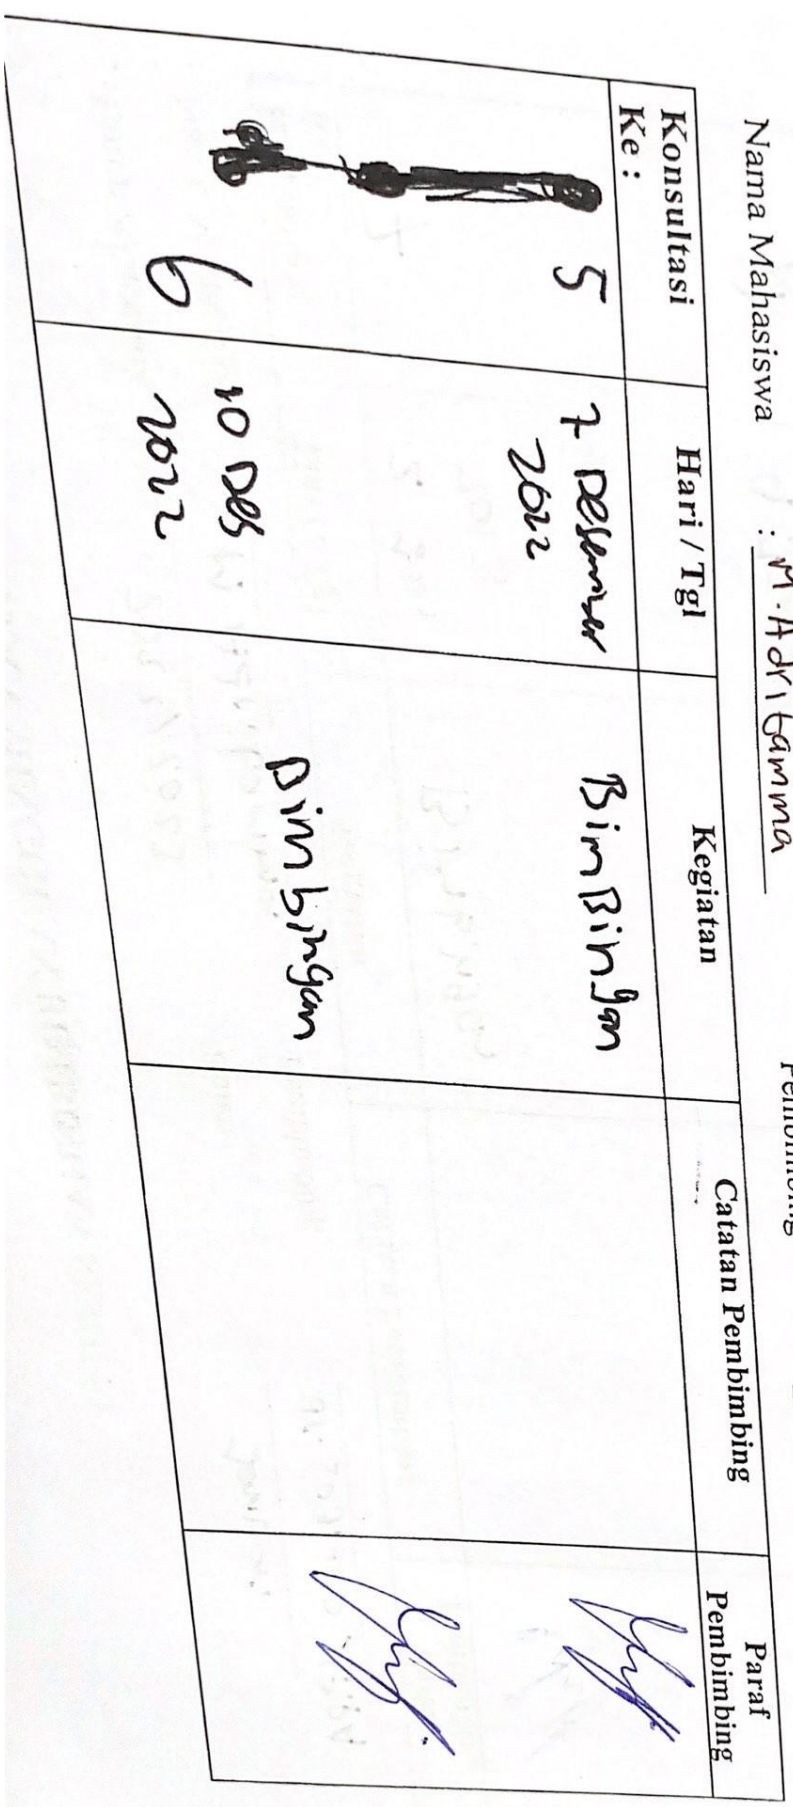 Nama Mahasiswa : M. Adri tamma
Konsultasi
Ke :
Hari / Tgl
Kegiatan
Catatan Pembimbing
Paraf
Pembimbing
5
7 Desember
2022
BimBingan
6
10 Des
2022
Bimbingan